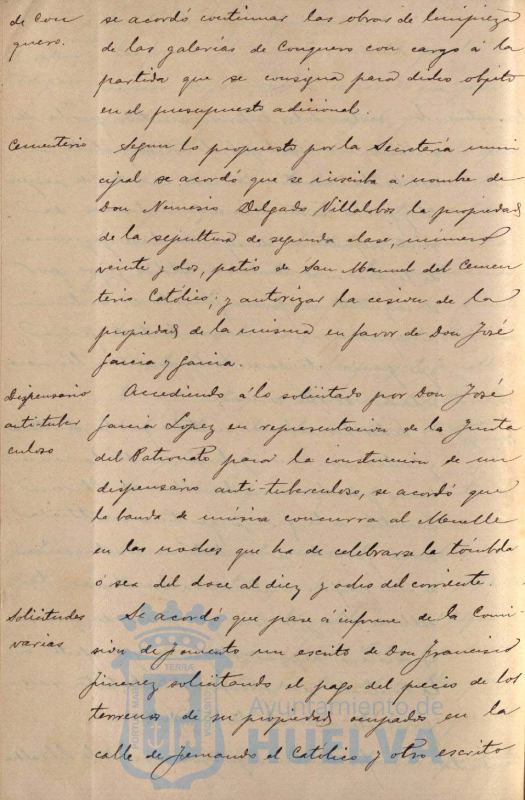 de Con
quero.
se acordó continuar las obras de limpieza
de las galerias de Conquero con cargo á la
partida que se consigna para dicho objeto
en el presupuesto adicional.
Cementerio
Segun lo propuesto por la Secretaría muni
cipal se acordó que se inscriba á nombre de
Don Nemesio Delgado Villalobos la propiedad
de la sepultura de segunda clase, número
veinte y dos, patio de San Manuel del Cemen
terio Católico; y autorizar la cesion de la
propiedad de la misma en favor de Don José
Garcia y Garcia.
Dispensario
anti-tuber
culoso
Accediendo á lo solicitado por Don José
Garcia Lopez en representacion de la Junta
del Patronato para la construccion de un
dispensario anti-tuberculoso, se acordó que
la banda de música concurra al Muelle
en las noches que ha de celebrarse la tómbola
ó sea del doce al diez y ocho del corriente.
Solicitudes
varias
Se acordó que pase á informe de la Comi
sion de fomento un escrito de Don Francisco
Jimenez solicitando el pago del precio de los
terrenos de su propiedad ocupados en la
calle de Fernando el Católico y otro escrito
Ayuntamiento de
HUELVA